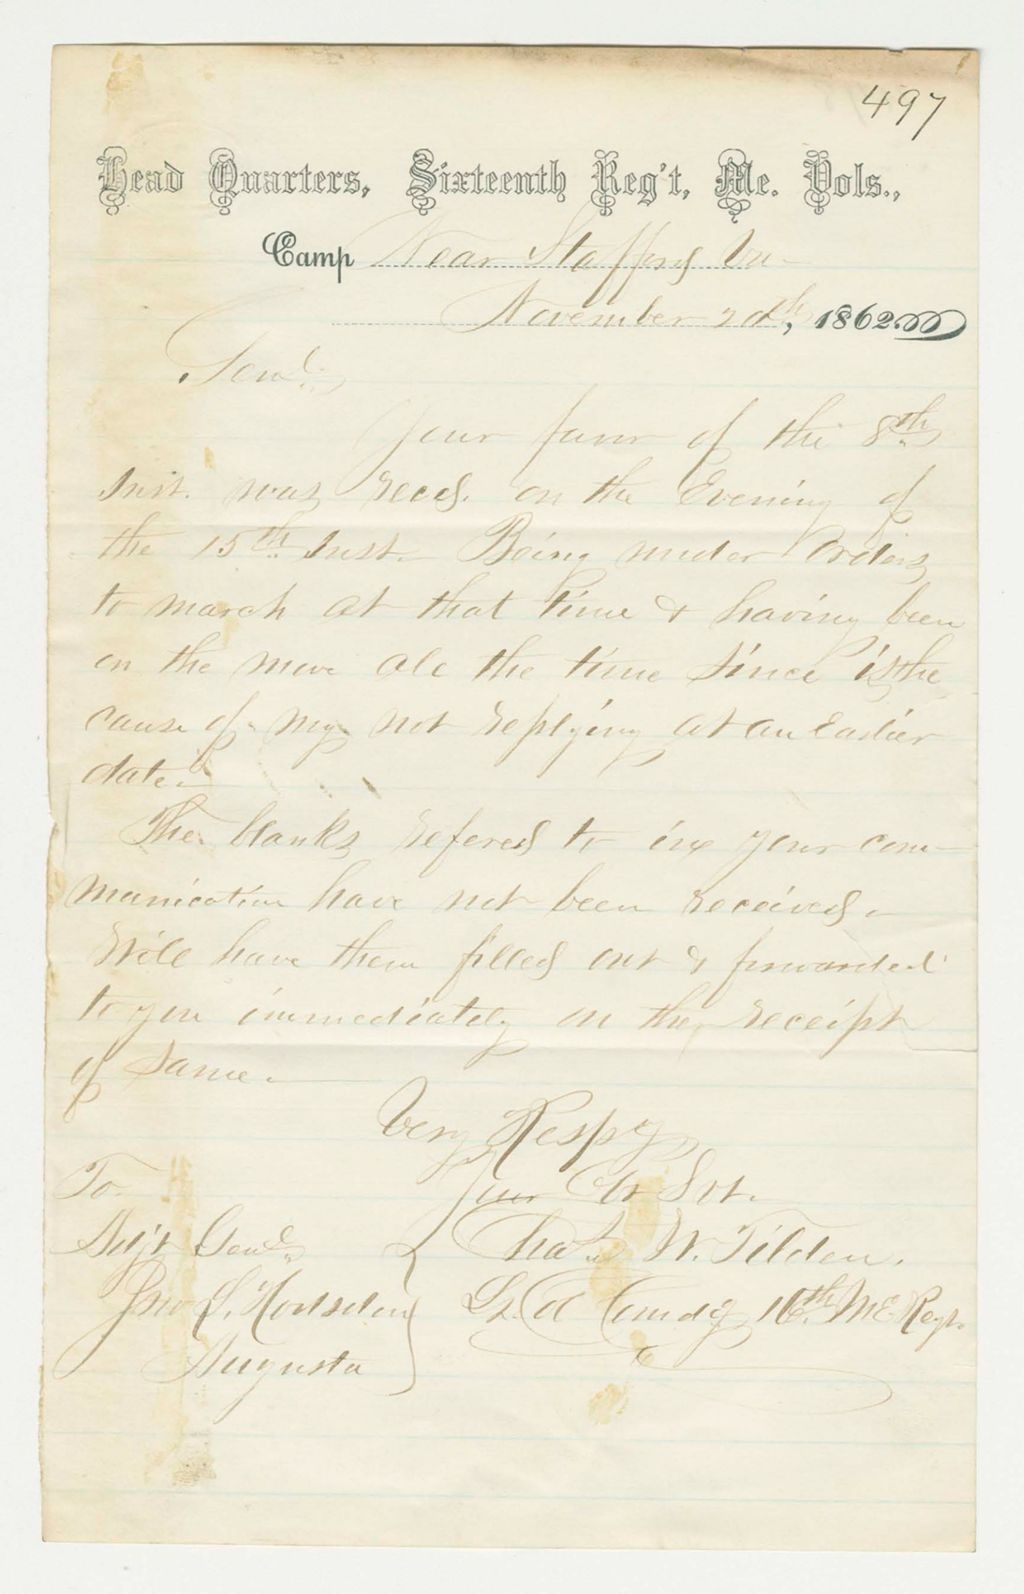 497
Head Quarters, Sixteenth Reg't, Me. Vols.,
Camp Near Stafford Va
November 20th, 1862
Genl.,
Your favor of the 8th
Inst. was recd. on the Evening of
the 15th Inst. Being under Orders
to march at that time & having been
on the move all the time since is the
cause of my not replying at an Earlier
date.
The blanks refered to in your com-
munication have not been received.
Will have them filled out & forwarded
to you immediately on the receipt
of same.
Very Respy
Your Ob Svt.
Chas. W. Tilden.
Lt. Col Comdg 16th ME Regt.
To
Adjt Genl.
Jno L. Hodsdon
Augusta